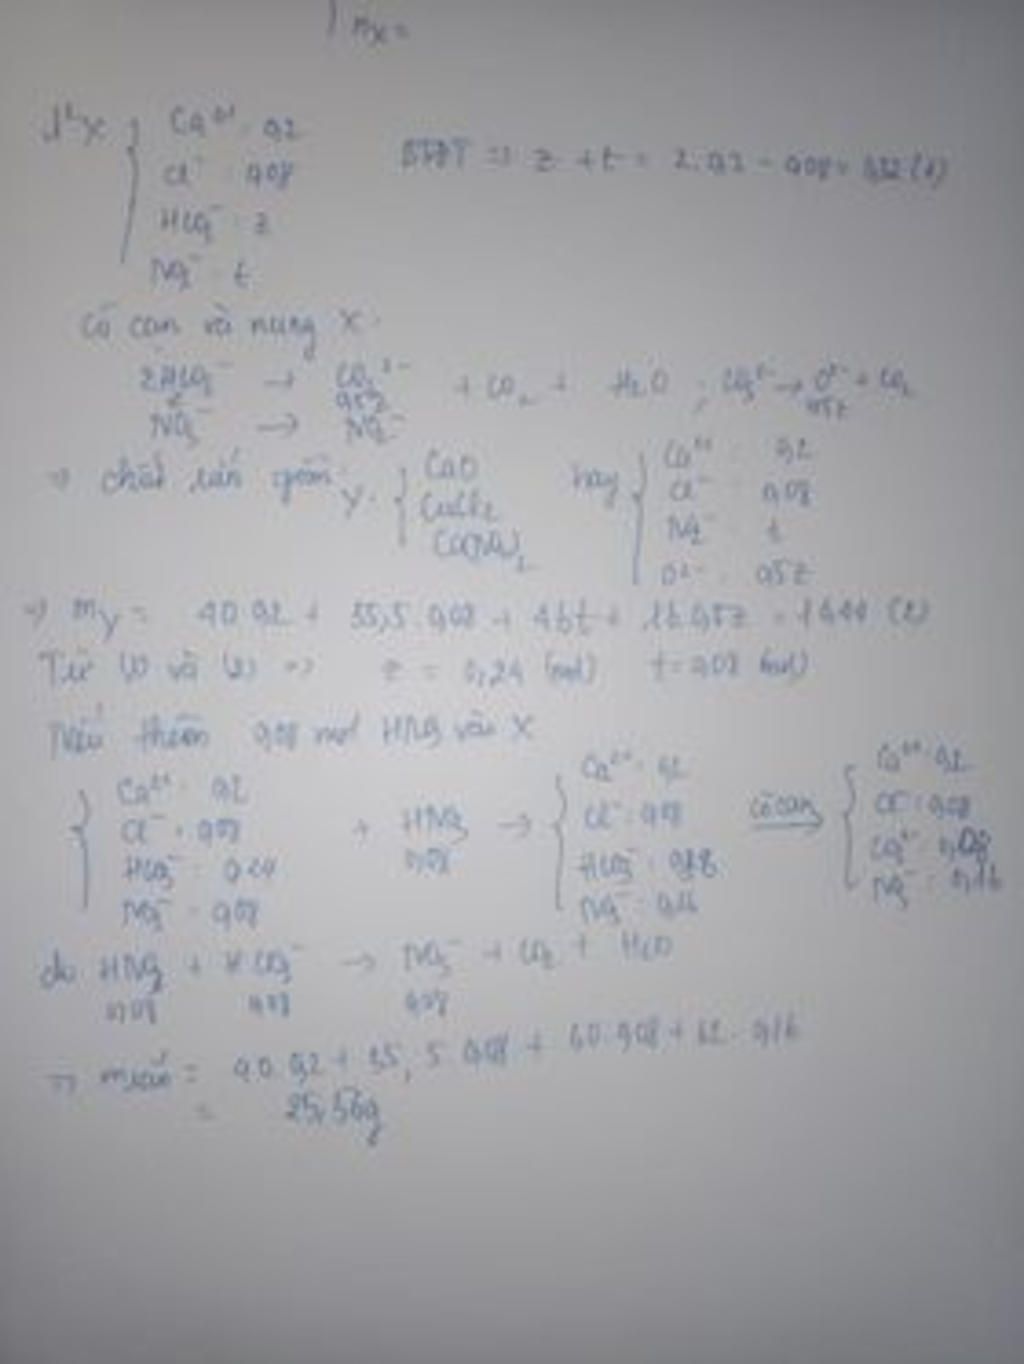 mX =
d² X { Ca²⁺ : 0,2
Cl⁻ : 0,08
HCO₃⁻ : z
NO₃⁻ : t
BTĐT ⇒ z + t = 2.0,2 - 0,08 = 0,32 (1)
Cô cạn và nung X :
2HCO₃⁻ → CO₃²⁻ + CO₂ + H₂O ; CO₃²⁻ → O²⁻ + CO₂
z 0,5z 0,5z
NO₃⁻ → NO₂⁻
⇒ chất rắn gồm Y : { CaO
CaCl₂
Ca(NO₂)₂
hay { Ca²⁺ : 0,2
Cl⁻ : 0,08
NO₂⁻ : t
O²⁻ : 0,5z
⇒ mY = 40.0,2 + 35,5.0,08 + 46t + 16.0,5z = 16,44 (2)
Từ (1) và (2) ⇒ z = 0,24 (mol) t = 0,08 (mol)
Nếu thêm 0,08 mol HNO₃ vào X
{ Ca²⁺ : 0,2
Cl⁻ : 0,08
HCO₃⁻ : 0,24
NO₃⁻ : 0,08
+ HNO₃ →
0,08
{ Ca²⁺ : 0,2
Cl⁻ : 0,08
HCO₃⁻ : 0,16
NO₃⁻ : 0,16
cô cạn →
{ Ca²⁺ : 0,2
Cl⁻ : 0,08
CO₃²⁻ : 0,08
NO₃⁻ : 0,16
do HNO₃ + HCO₃⁻ → NO₃⁻ + CO₂ + H₂O
0,08 0,08 0,08
⇒ mrắn = 40.0,2 + 35,5.0,08 + 60.0,08 + 62.0,16
= 25,56g